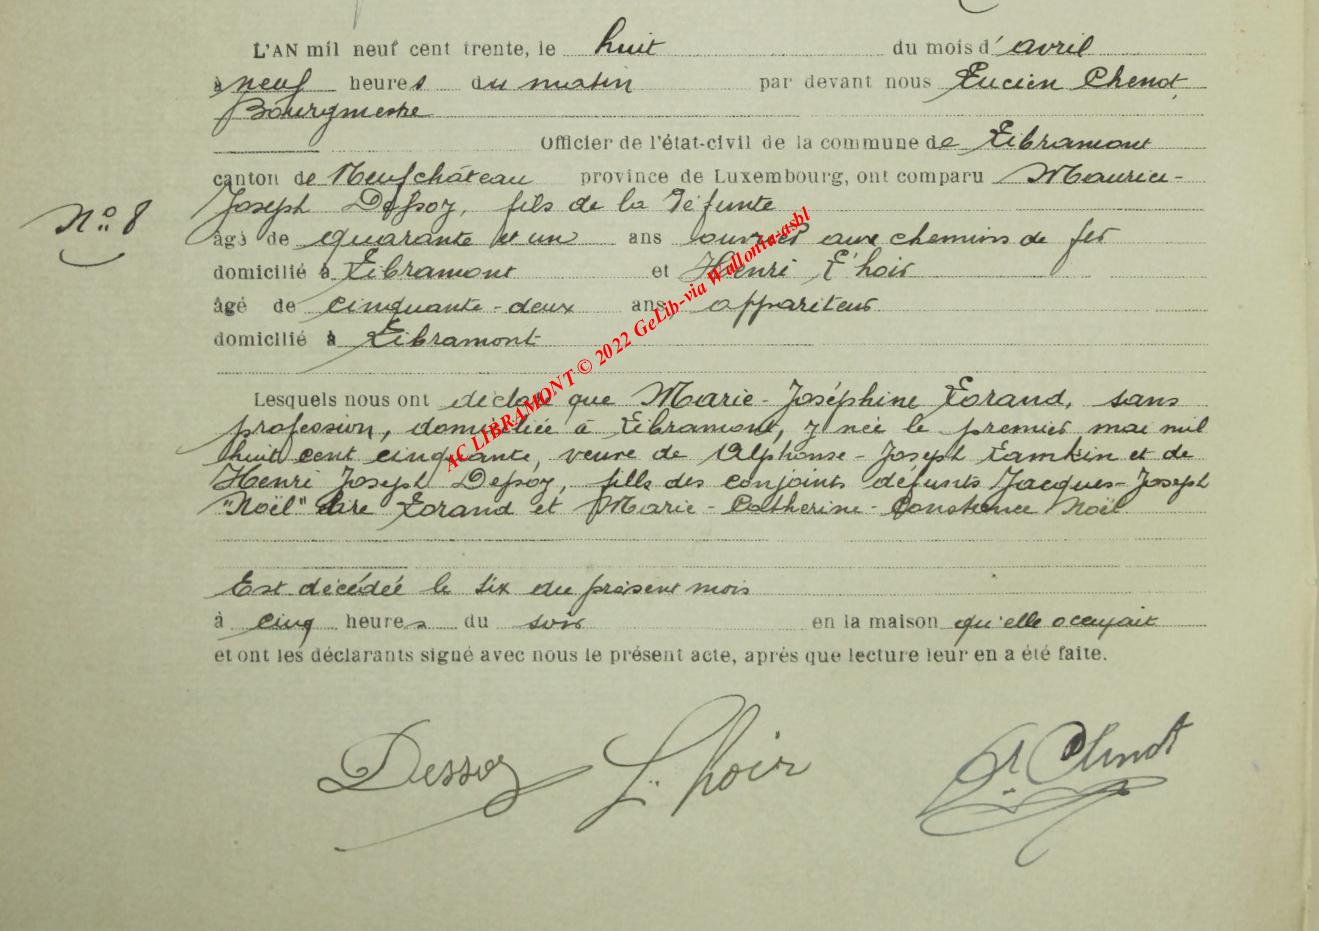 L'AN mil neuf cent trente, le huit du mois d'avril
à neuf heures du matin par devant nous Lucien Chenot,
Bourgmestre
Officier de l'état-civil de la commune de Libramont
canton de Neufchâteau province de Luxembourg, ont comparu Maurice-
N° 8
Joseph Dessoy, fils de la défunte
âgé de quarante et un ans ouvrier aux chemins de fer
domicilié à Libramont et Henri L'hoir
âgé de cinquante-deux ans appariteur
domicilié à Libramont
AC LIBRAMONT © 2022 GeLib-via Wallonia-asbl
Lesquels nous ont déclaré que Marie-Joséphine Lorand, sans
profession, domiciliée à Libramont, y née le premier mai mil
huit cent cinquante, veuve de Alphonse-Joseph Lambin et de
Henri Joseph Dessoy, fille des conjoints défunts Jacques-Joseph
"Noël" dire Lorand et Marie-Catherine-Constance Noël
Est décédée le six du présent mois
à cinq heures du soir en la maison qu'elle occupait
et ont les déclarants signé avec nous le présent acte, après que lecture leur en a été faite.
Dessoy L'hoir Chenot